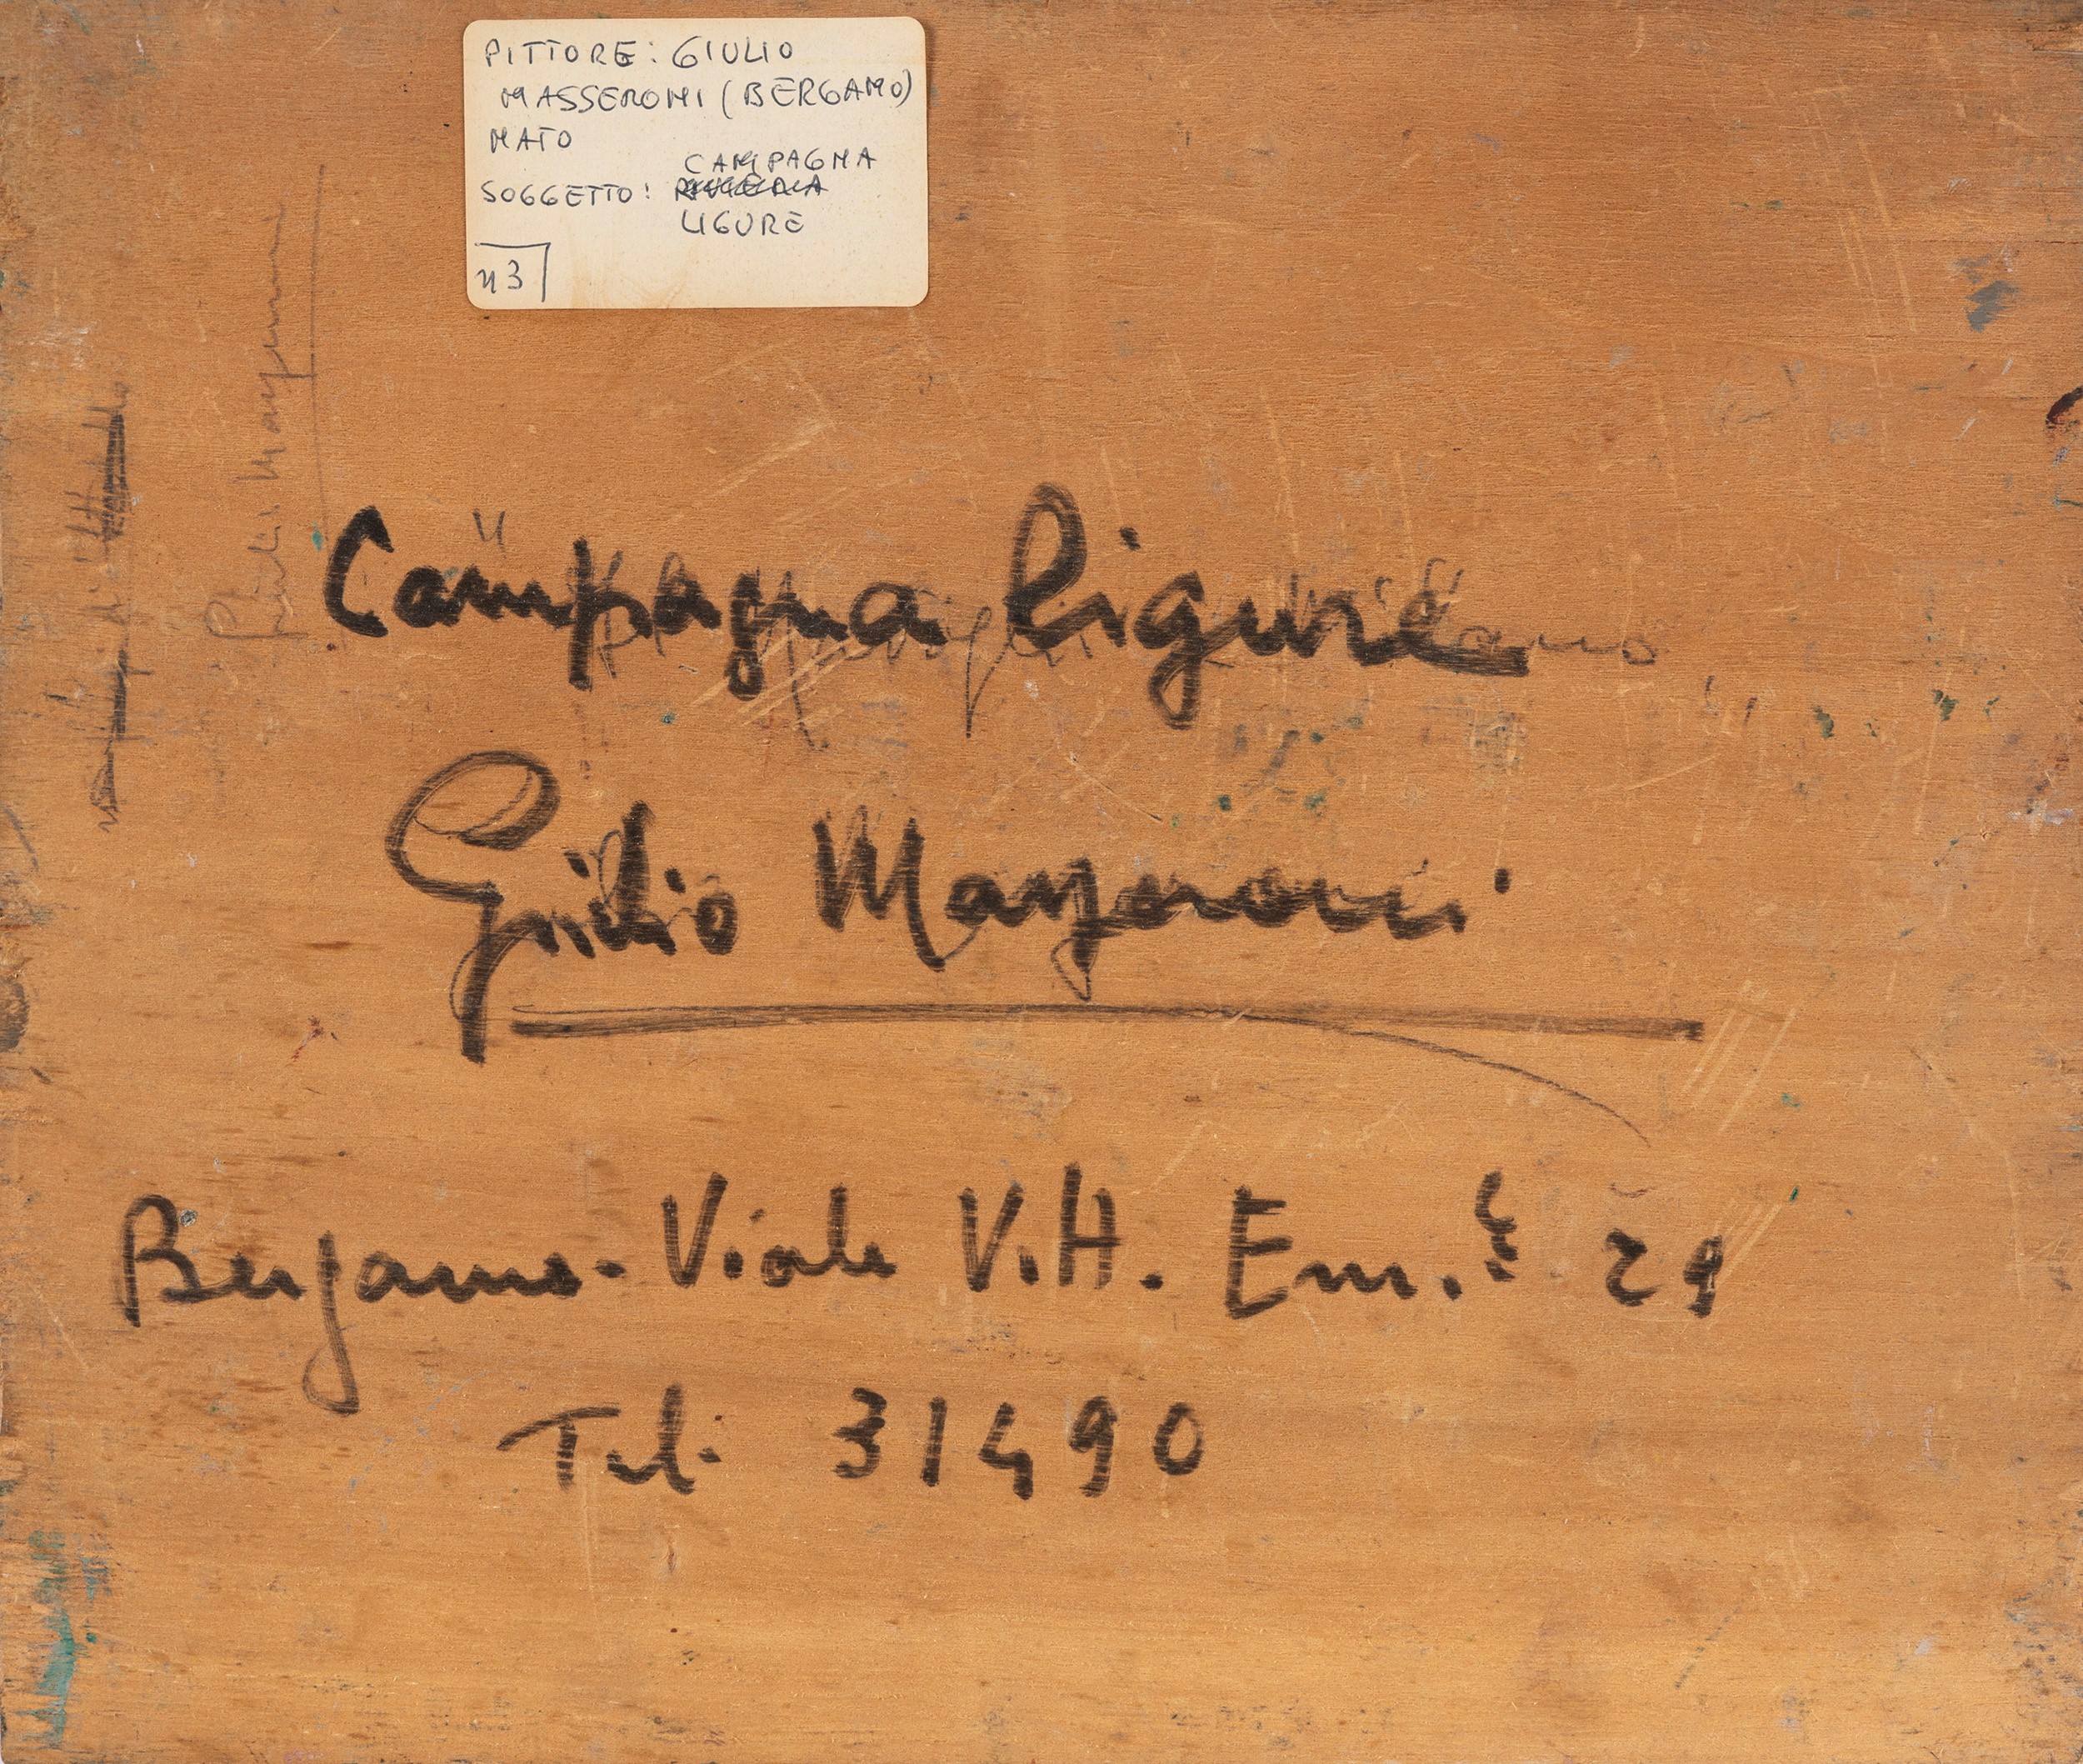 PITTORE: GIULIO
MASSERONI (BERGAMO)
NATO
CAMPAGNA
SOGGETTO: RIVIERA
LIGURE
n 3
Campagna Ligure
Giulio Masseroni
Bergamo - Viale V. H. Em. 29
Tel. 31490